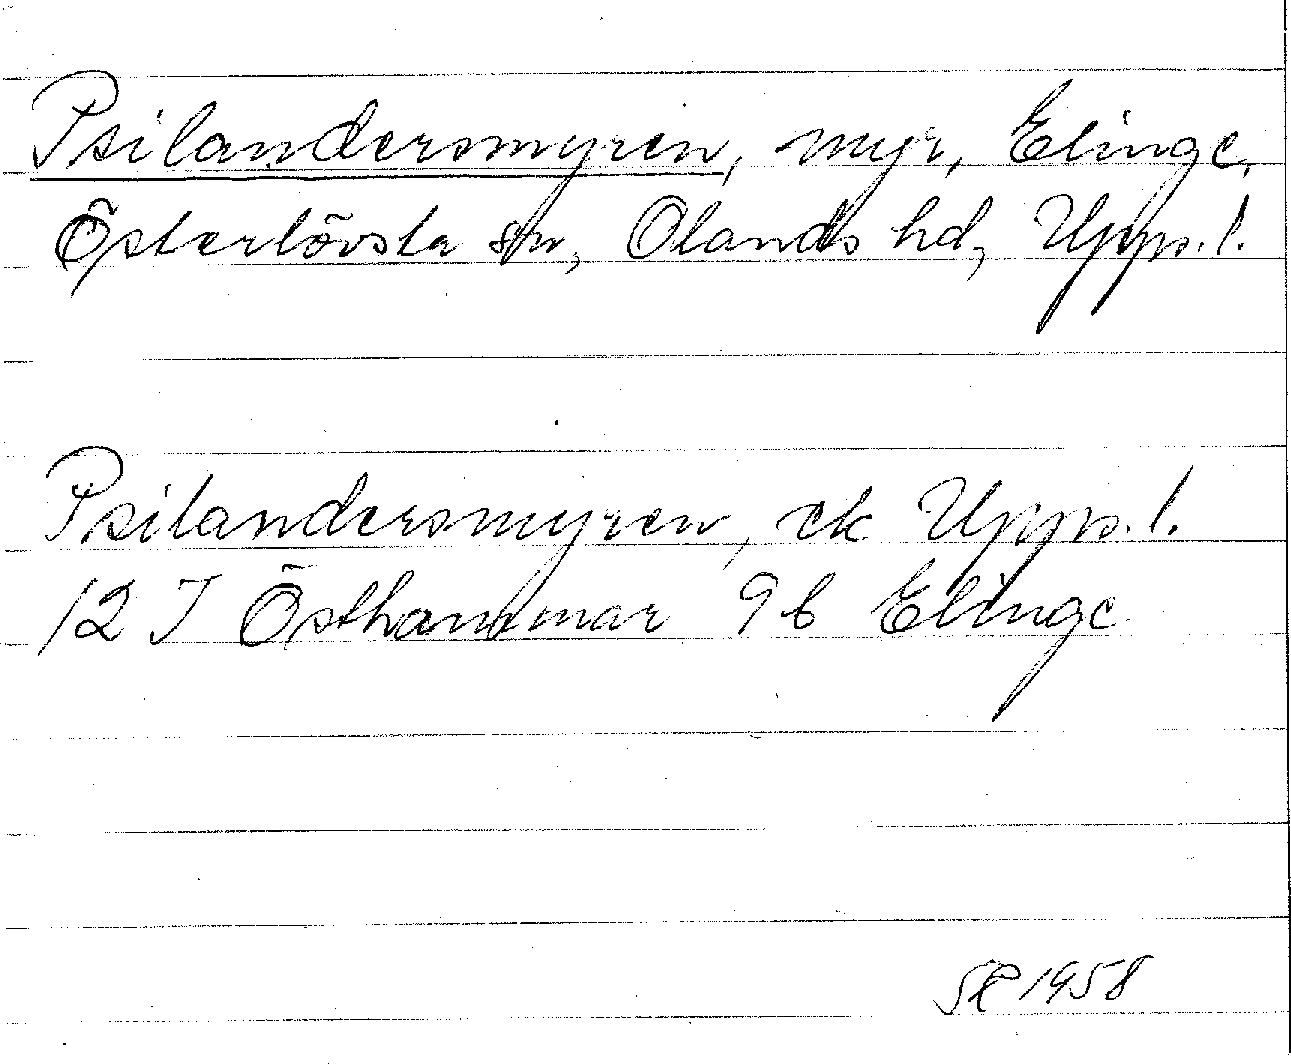 Psilandersmyren, myr, Elinge,
Österlövsta sn, Olands hd, Upps. l.
Psilandersmyren, ek Upps. l.
12 I Östhammar 9 b Elinge
1958